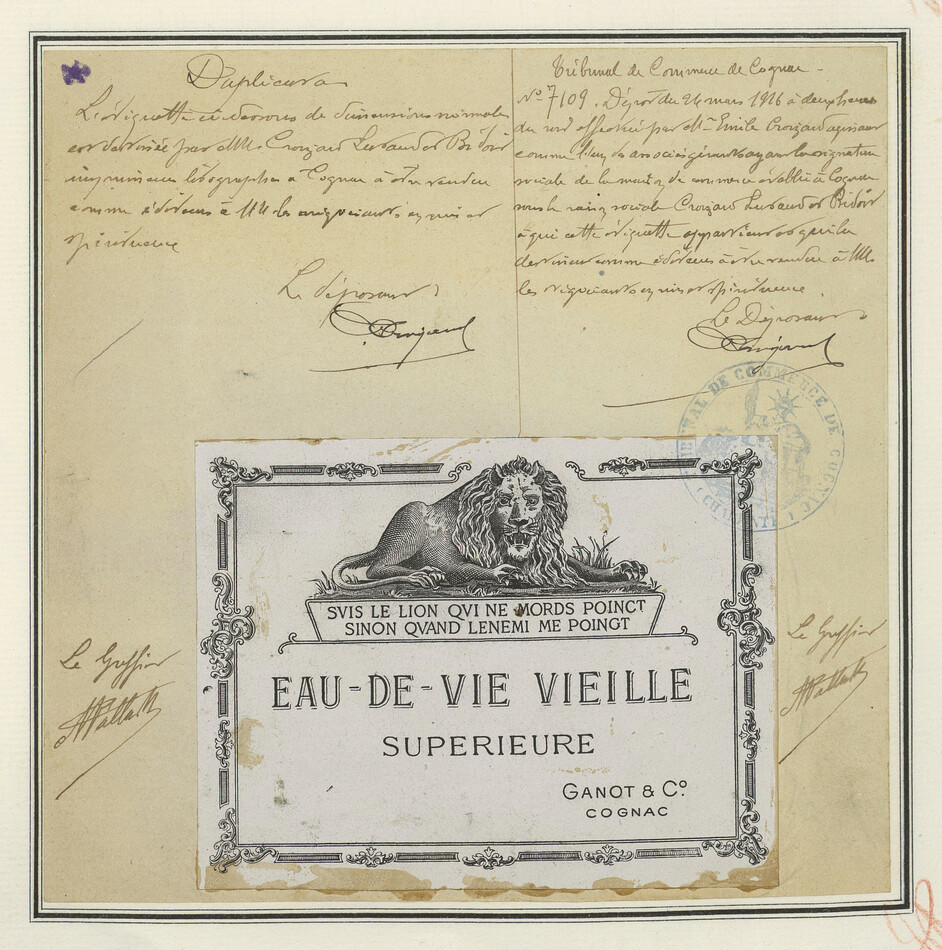 Duplicata
L'étiquette ci-dessous de dimensions normales
est destinée par MM. Croizard Lusaud et Bridoir
imprimeurs lithographes à Cognac à être vendue
comme éditeurs à MM les négociants en vins et
spiritueux
Le déposant
Tribunal de Commerce de Cognac -
No 7109. Dépôt du 24 mars 1916 à deux heures
du soir effectué par Mr Emile Croizard agissant
comme l'un des associés gérants ayant la signature
sociale de la maison de commerce établie à Cognac
sous la raison sociale Croizard Lusaud et Bridoir
à qui cette étiquette appartient et qui la
destinent comme éditeurs à être vendue à MM.
les négociants en vins et spiritueux.
Le Déposant
TRIBUNAL DE COMMERCE DE COGNAC
(CHARENTE)
SVIS LE LION QVI NE MORDS POINCT
SINON QVAND LENEMI ME POINGT
EAU-DE-VIE VIEILLE
SUPERIEURE
GANOT & Co.
COGNAC
Le Greffier
Le Greffier